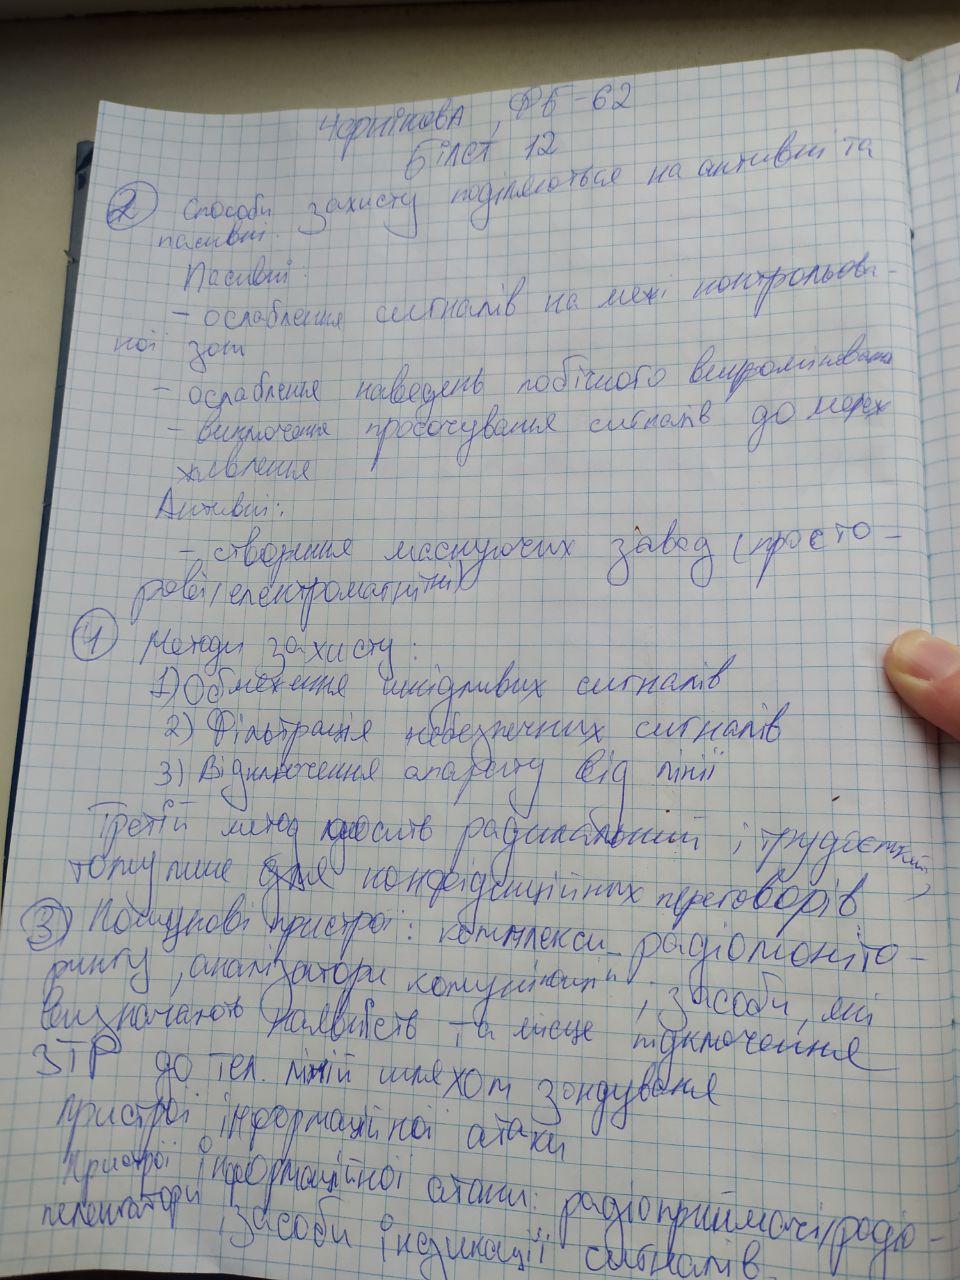 Чернікова, ФБ-62
Білет 12
2 Способи захисту поділяються на активні та
пасивні.
Пасивні:
- ослаблення сигналів на межі контрольова-
ної зони
- ослаблення наведень побічного випромінювання
- виключення просочування сигналів до мереж
живлення
Активні:
- створення маскуючих завад (просто-
рові, електромагнітні)
4 Методи захисту:
1) Обмеження шкідливих сигналів
2) Фільтрація небезпечних сигналів
3) Відключення апарату від лінії
Третій метод досить радикальний і трудоєсткий,
тому лише для конфіденційних переговорів.
3 Пошукові пристрої: комплекси радіомоніто-
рингу, аналізатори комунікації, засоби, які
визначають наявність та місце підключення
ЗТР до тел. ліній шляхом зондування
Пристрої інформаційної атаки
Пристрої інформаційної атаки: радіоприймачі, радіо-
пеленгатори, засоби індикації сигналів.